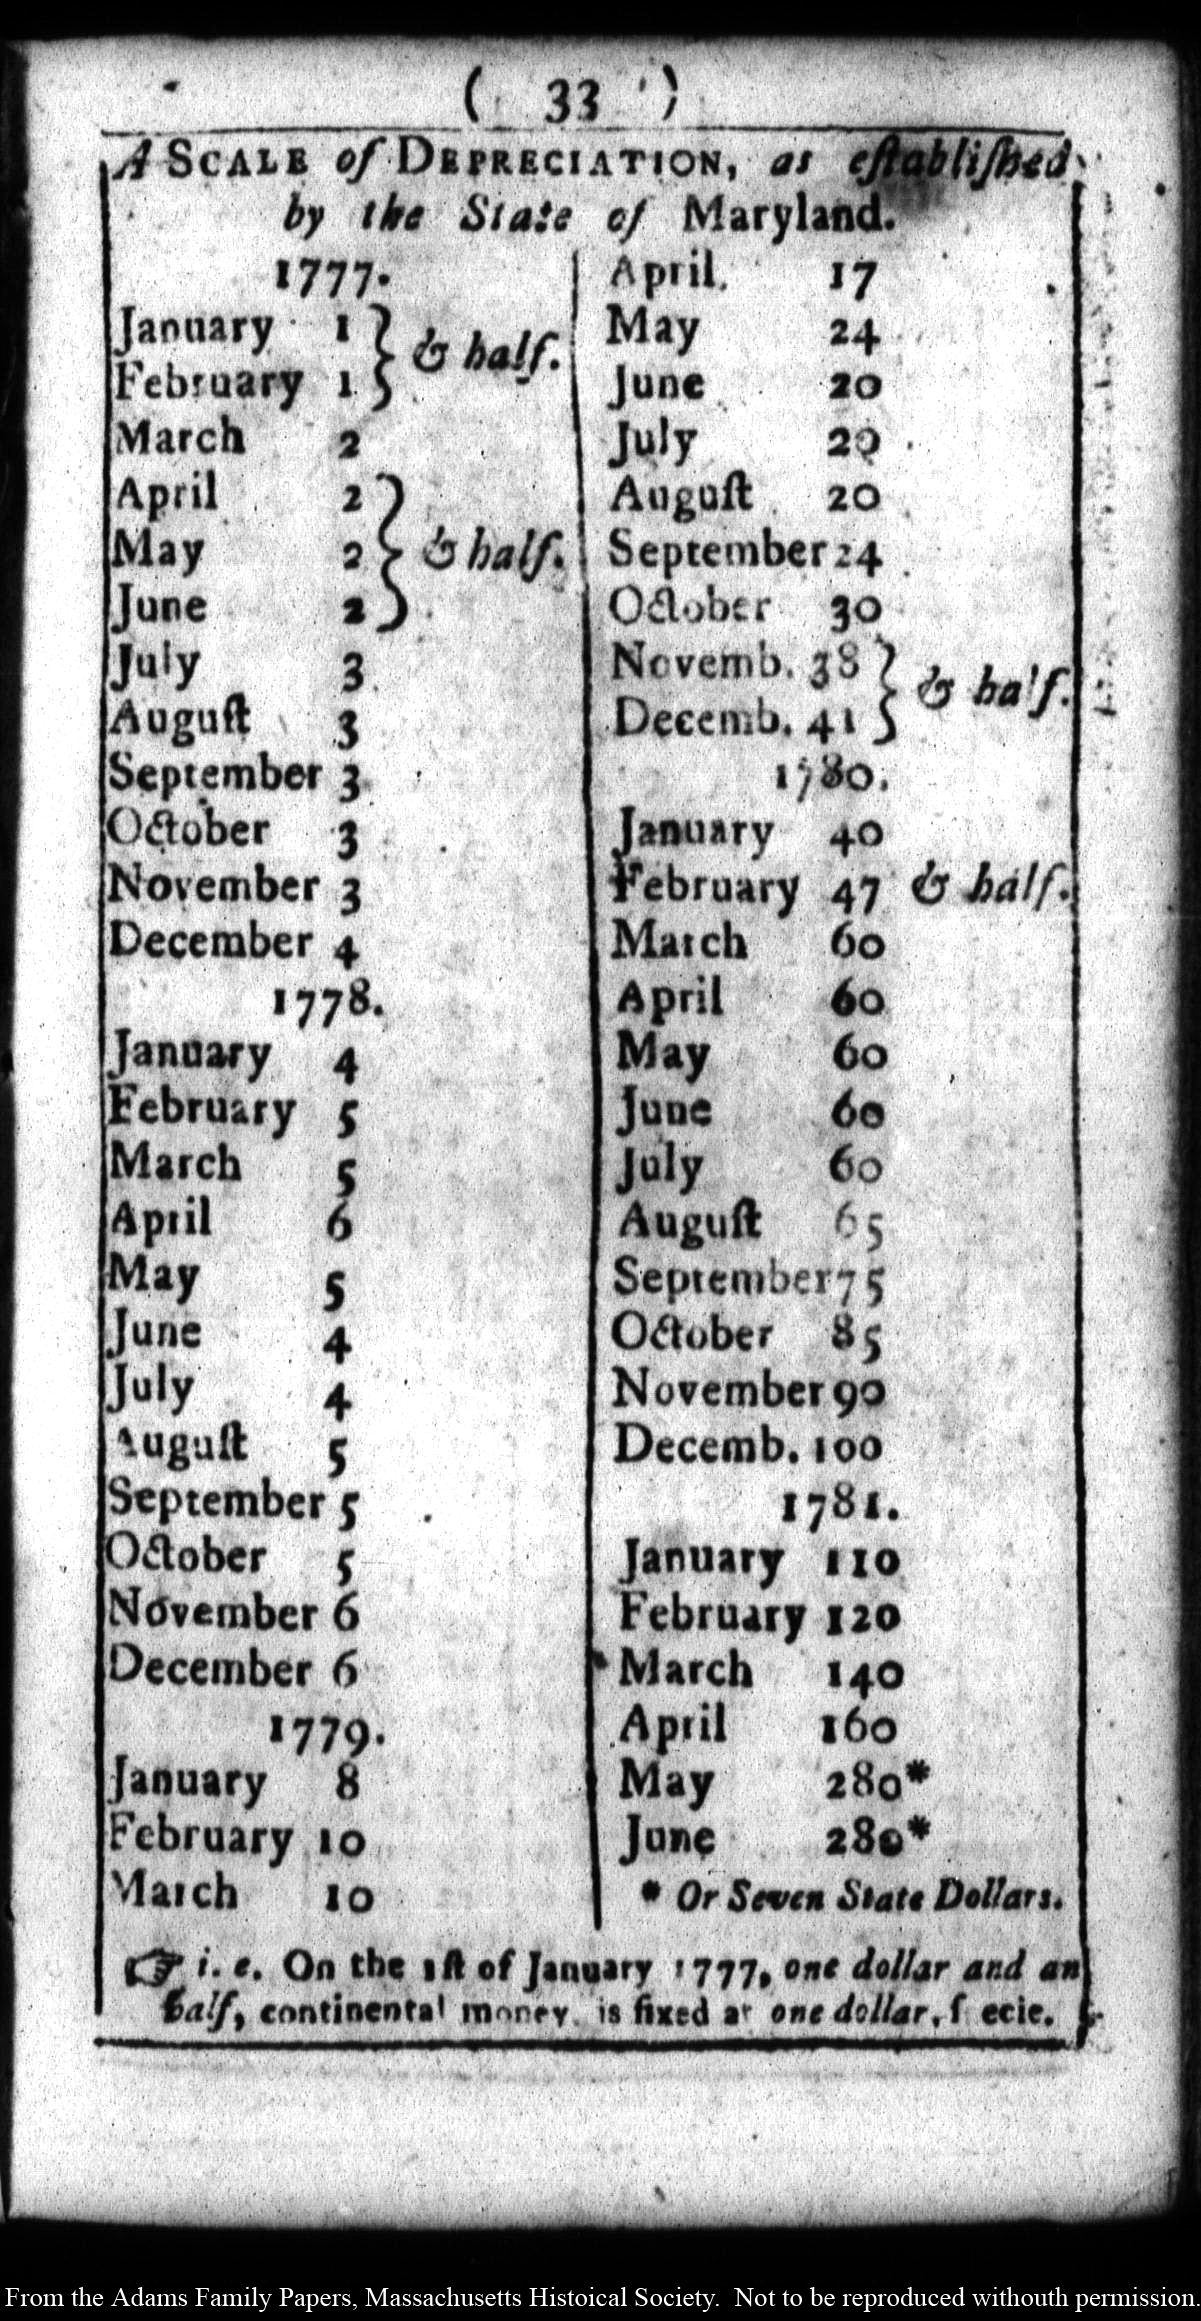 ( 33 )
A SCALE of DEPRECIATION, as eſtabliſhed
by the State of Maryland.
1777.
January 1 } & half.
February 1 }
March 2
April 2 }
May 2 } & half.
June 2 }
July 3
Auguſt 3
September 3
October 3
November 3
December 4
1778.
January 4
February 5
March 5
April 6
May 5
June 4
July 4
Auguſt 5
September 5
October 5
November 6
December 6
1779.
January 8
February 10
March 10
April. 17
May 24
June 20
July 20
Auguſt 20
September 24
October 30
Novemb. 38 } & half.
Decemb. 41 }
1780.
January 40
February 47 & half.
March 60
April 60
May 60
June 60
July 60
Auguſt 65
September 75
October 85
November 90
Decemb. 100
1781.
January 110
February 120
March 140
April 160
May 280*
June 280*
* Or Seven State Dollars.
☞ i. e. On the 1ſt of January 1777, one dollar and an
half, continental money is fixed at one dollar, ſ ecie.
From the Adams Family Papers, Massachusetts Histoical Society. Not to be reproduced withouth permission.